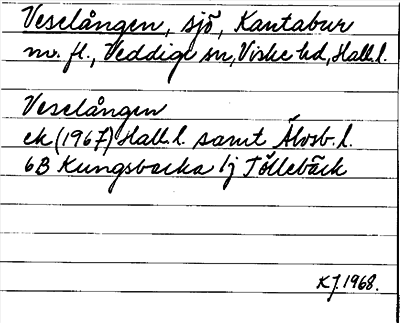 Veselången, sjö, Kantabur
m. fl., Veddige sn, Viske hd, Hall. l.
Veselången
ek (1967) Hall. l. samt Älvsb. l.
6B Kungsbacka 1j Töllebäck
KJ. 1968.